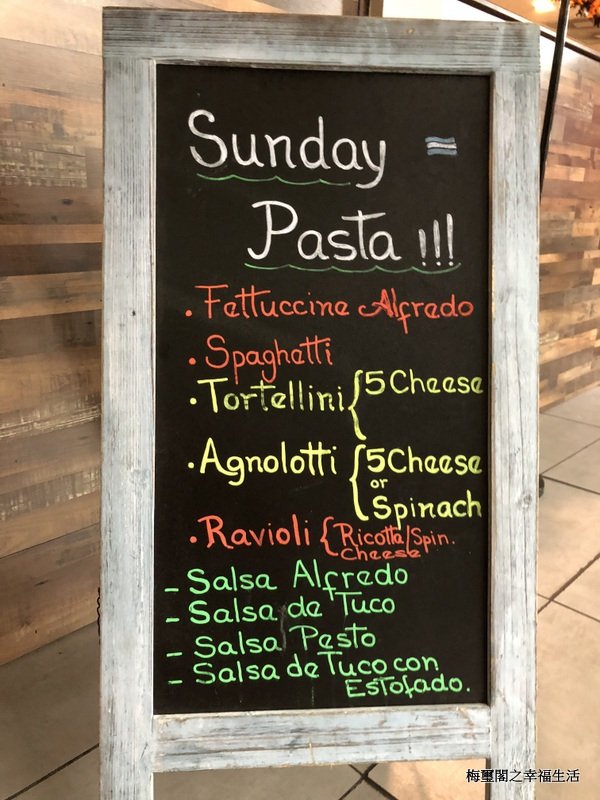 Sunday
Pasta !!!
• Fettuccine Alfredo
• Spaghetti
• Tortellini { 5 Cheese
• Agnolotti { 5 Cheese
or
Spinach
• Ravioli { Ricotta/Spin.
Cheese
- Salsa Alfredo
- Salsa de Tuco
- Salsa Pesto
- Salsa de Tuco con
Estofado.
梅璽閣之幸福生活